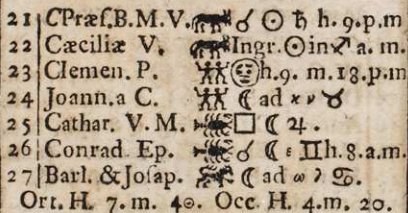 21 CPræſ.B.M.V. ♉ ☌ ☉ ♄ h. 9.p.m
22 Cæciliæ V. ♉ Ingr. ☉ in ♐ a. m.
23 Clemen. P. ♊ h.9. m.18.p.m
24 Joann.a C. ♊ ☾ ad ϰ ν ♉
25 Cathar. V. M. ♋ □ ☾ ♃.
26 Conrad Ep. ♋ ☌ ☾ ε ♊ h.8.a.m.
27 Barl. & Joſap. ♌ ☾ ad ω ♋.
Ort. H. 7. m. 40. Occ H. 4.m. 20.